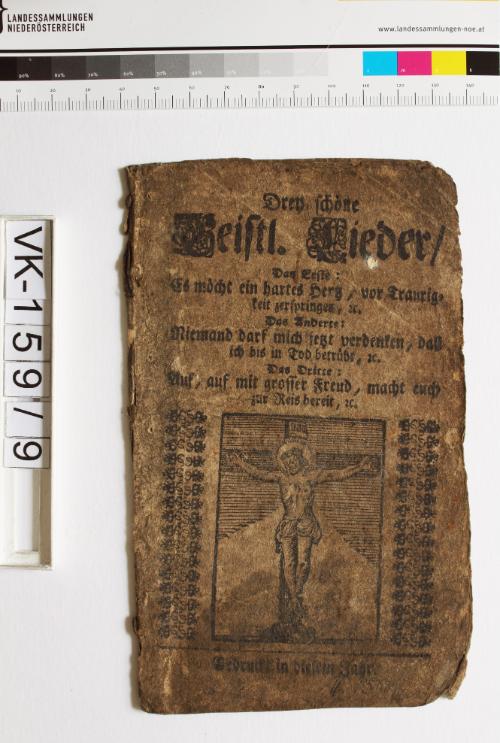 LANDESSAMMLUNGEN
NIEDERÖSTERREICH
www.landessammlungen-noe.at
VK-159/9
Drey schöne
Geistl. Lieder/
Das Erste:
Es möcht ein hartes Hertz, vor Traurig-
keit zerspringen, ꝛc.
Das Anderte:
Niemand darf mich jetzt verdenken, daß
ich bis in Tod betrübt, ꝛc.
Das Dritte:
Auf, auf mit grosser Freud, macht euch
zur Reis bereit, ꝛc.
Gedruckt in diesem Jahr.